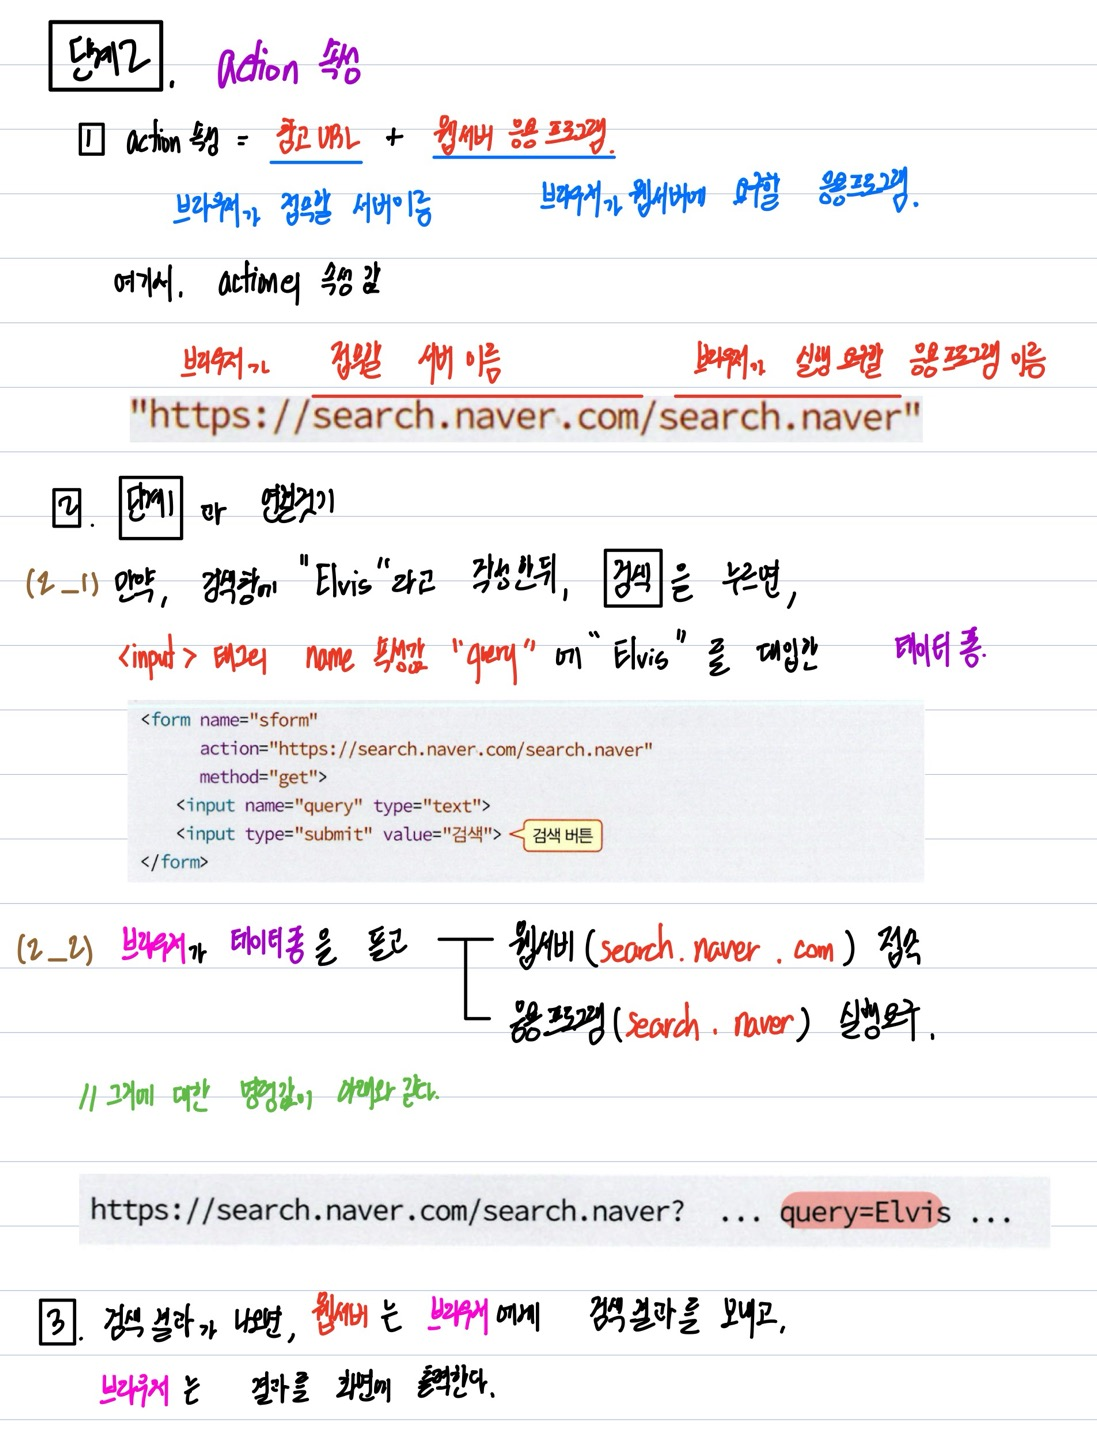 단계2. action 속성
1 action 속성 = 참고 URL + 웹서버 응용 프로그램.
브라우저가 접속할 서버이름 브라우저가 웹서버에 요구할 응용프로그램.
여기서, action의 속성 값
브라우저가 접속할 서버 이름 브라우저가 실행 요구할 응용 프로그램 이름
"https://search.naver.com/search.naver"
2. 단계1 과 연결짓기
(2_1) 만약, 검색창에 "Elvis"라고 작성한뒤, 검색 을 누르면,
<input> 태그의 name 속성값 "query" 에 "Elvis" 를 대입한 데이터 폼.
<form name="sform"
action="https://search.naver.com/search.naver"
method="get">
<input name="query" type="text">
<input type="submit" value="검색"> 검색 버튼
</form>
(2_2) 브라우저가 데이터폼을 들고 웹서버(search.naver.com) 접속
응용프로그램(search.naver) 실행요구.
// 그거에 대한 명령값이 아래와 같다.
https://search.naver.com/search.naver? ... query=Elvis ...
3. 검색 결과가 나오면, 웹서버는 브라우저에게 검색결과를 보내고,
브라우저는 결과를 화면에 출력한다.